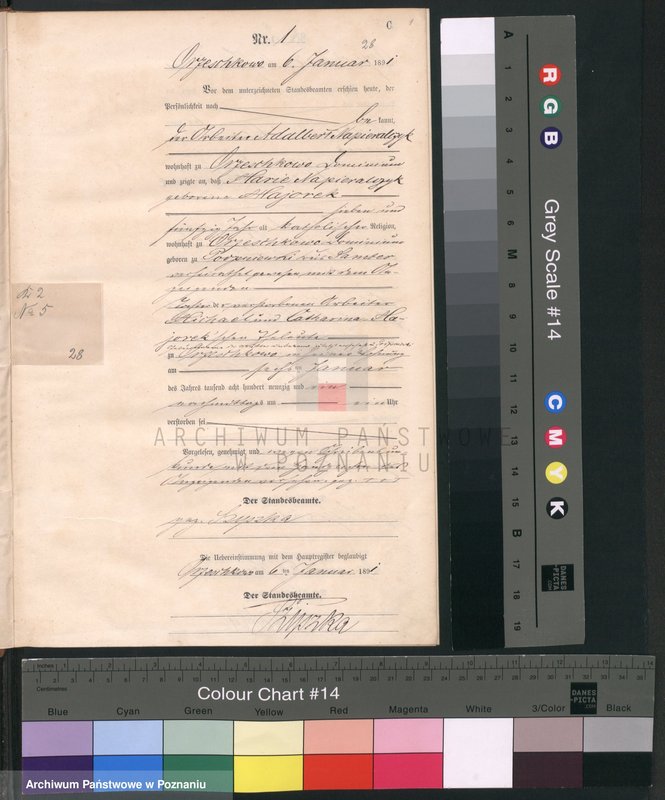 C
1
Nr. 1
28
Orzeschkowo am 6. Januar 1891
Vor dem unterzeichneten Standesbeamten erschien heute, der
Persönlichkeit nach
be kannt,
der Arbeiter Adalbert Napieralczyk
wohnhaft zu Orzeschkowo Dominium
und zeigte an, daß Marie Napieralczyk
geborene Majorek
sieben und
fünfzig Jahr alt katholischer Religion,
wohnhaft zu Orzeschkowo Dominium
geboren zu
verheirathet gewesen mit dem An-
zeigenden
Tochter der verstorbenen Arbeiter
Michael und Catharina Ma-
jorek'schen Eheleute
zu Orzeschkowo in seiner Wohnung
am sechsten Januar
des Jahres tausend acht hundert neunzig und ein
nachmittags um ein Uhr
verstorben sei
Vorgelesen, genehmigt und
Der Standesbeamte.
gez. Szyszka
Die Uebereinstimmung mit dem Hauptregister beglaubigt
Orzeschkowo am 6 ten Januar 1891
Der Standesbeamte.
Szyszka
No 5
28
ARCHIWUM PAŃSTWOWE
W POZNANIU
A 1 2 3 4 5 6 M 8 9 10 11 12 13 14 15 B 17 18 19
R G B
Grey Scale #14
C M Y K
DANES
-PICTA
.COM
Inches
Centimetres
Colour Chart #14
DANES
-PICTA
.COM
Blue Cyan Green Yellow Red Magenta White 3/Color Black
Archiwum Państwowe w Poznaniu